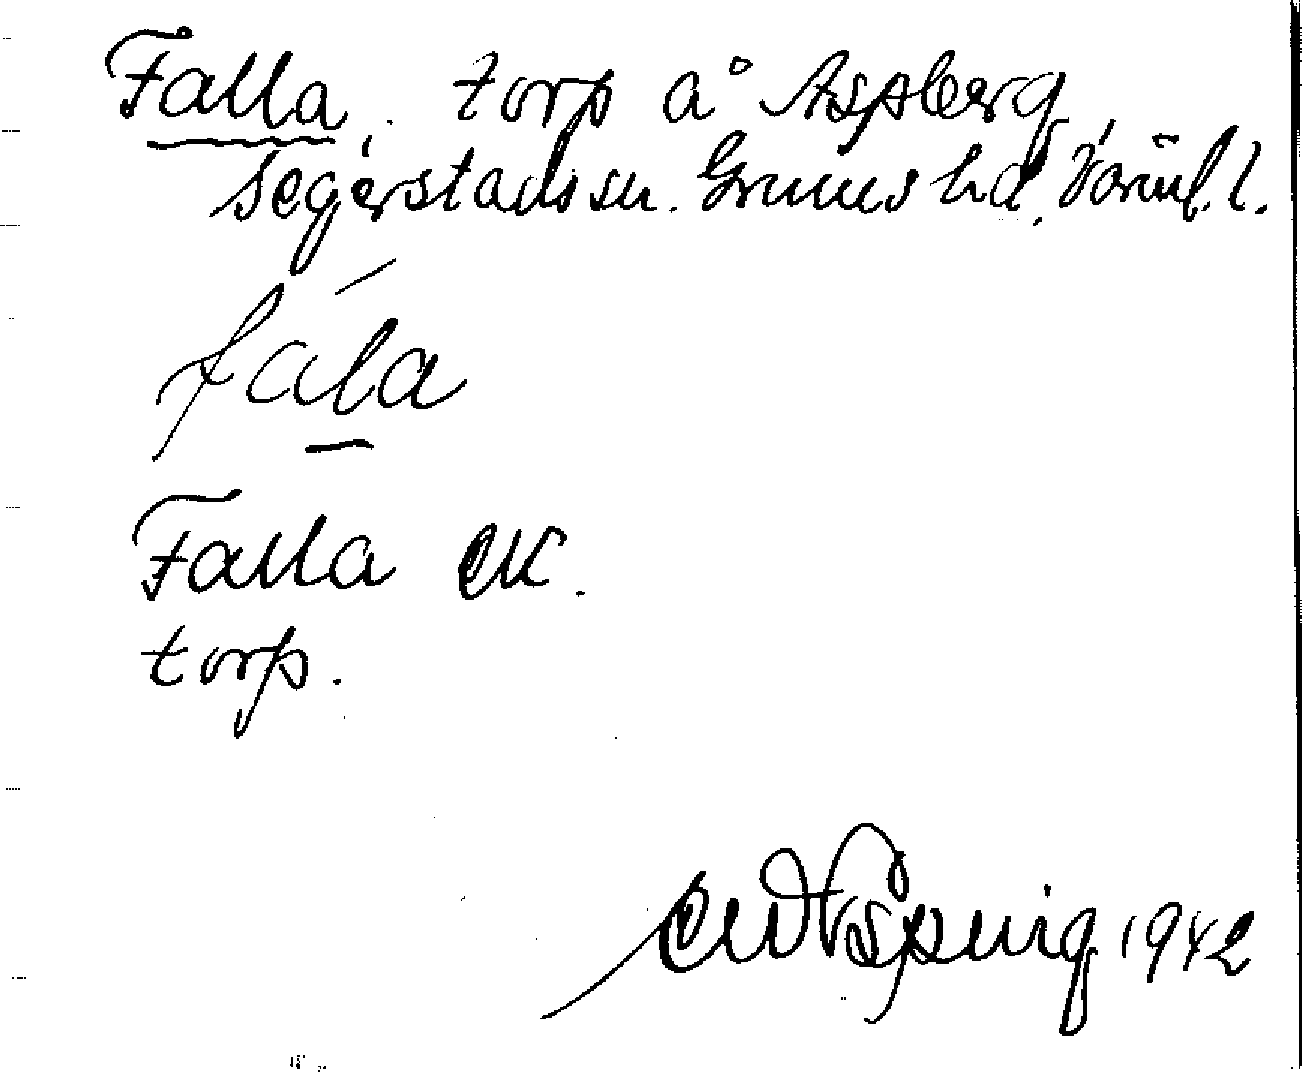 Falla. torp å Aspberg
Segerstads sn. Grums hd, Värml. l.
fàla
Falla EK.
torp.
1942